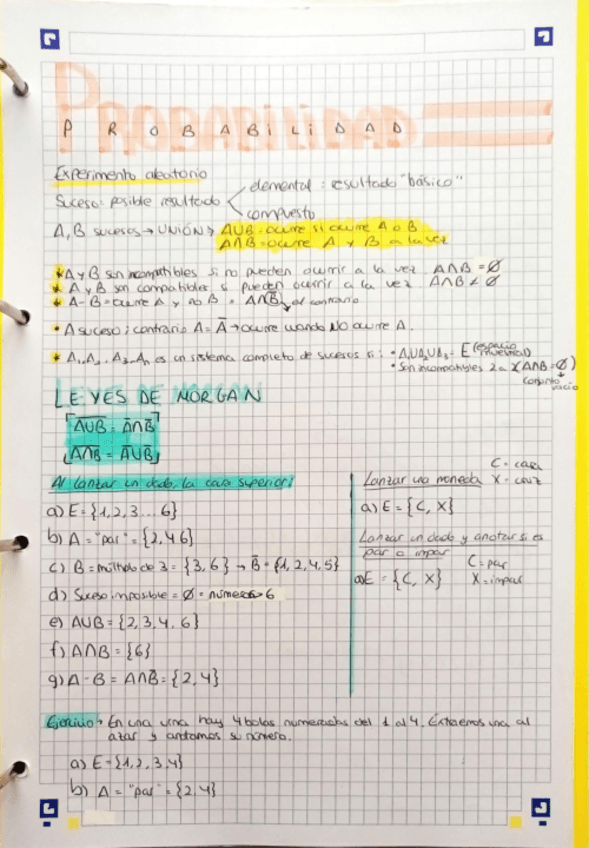 PROBABILIDAD
P R O B A B i L i D A D
Experimento aleatorio
elemental : resultado "básico"
Suceso: posible resultado
compuesto
A, B sucesos → UNIÓN → AUB = ocurre si ocurre A o B
A∩B = ocurre A y B a la vez
* A y B son incompatibles si no pueden ocurrir a la vez A∩B = Ø
* A y B son compatibles si pueden ocurrir a la vez A∩B ≠ Ø
* A - B = ocurre A y no B = A∩B̅ → al contrario
• A suceso ; contrario A = A̅ → ocurre cuando NO ocurre A.
* A₁, A₂, A₃...Aₙ es un sistema completo de sucesos si : • A₁UA₂UA₃ = E (espacio muestral)
• Son incompatibles 2 a 2 (A∩B = Ø)
conjunto vacío
LEYES DE MORGAN
A̅U̅B̅ = A̅∩B̅
A̅∩̅B̅ = A̅UB̅
Al lanzar un dado, la cara superior:
a) E = {1,2,3...6}
b) A = "par" = {2,4,6}
c) B = múltiplo de 3 = {3,6} → B̅ = {1,2,4,5}
d) Suceso imposible = Ø = número > 6
e) AUB = {2,3,4,6}
f) A∩B = {6}
g) A - B = A∩B̅ = {2,4}
C = cara
Lanzar una moneda X = cruz
a) E = {C, X}
Lanzar un dado y anotar si es
par o impar
C = par
a) E = {C, X} X = impar
Ejercicio → En una urna hay 4 bolas numeradas del 1 al 4. Extraemos una al
azar y anotamos su número.
a) E = {1,2,3,4}
b) A = "par" = {2,4}